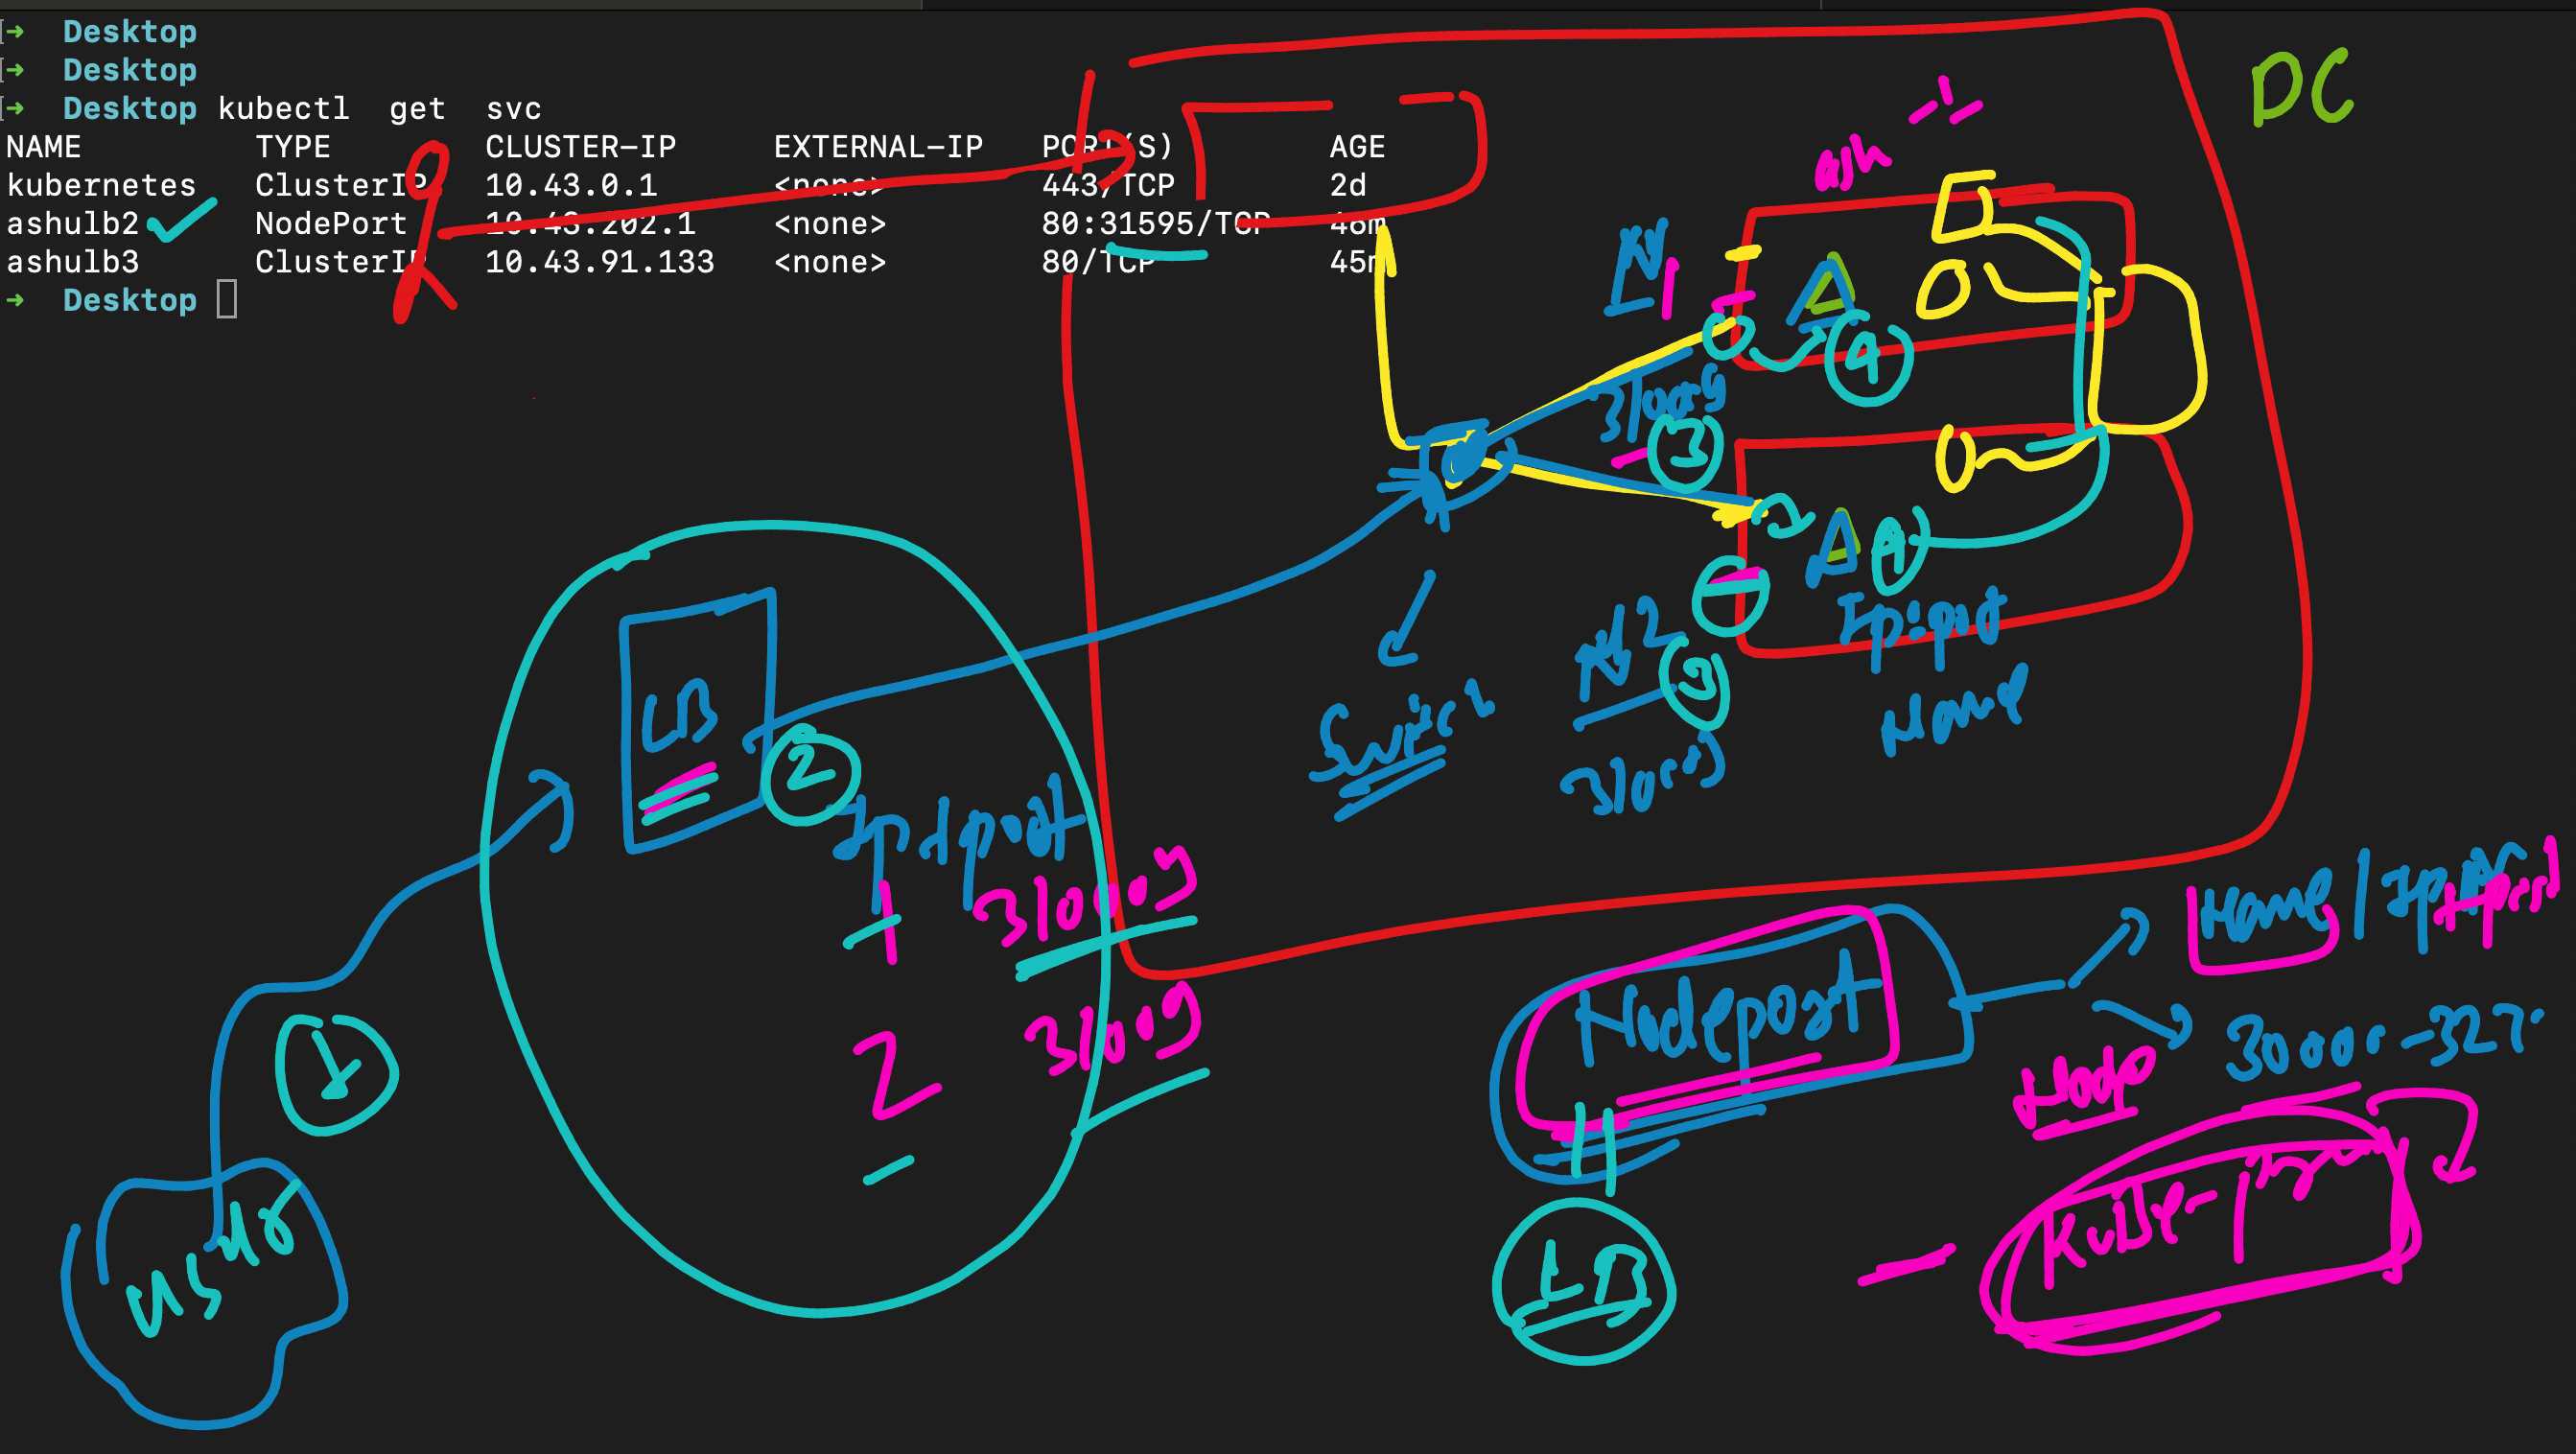 ➜ Desktop
➜ Desktop
➜ Desktop kubectl get svc
NAME TYPE CLUSTER-IP EXTERNAL-IP PORT(S) AGE
kubernetes ClusterIP 10.43.0.1 <none> 443/TCP 2d
ashulb2 NodePort 10.43.202.1 <none> 80:31595/TCP 46m
ashulb3 ClusterIP 10.43.91.133 <none> 80/TCP 45m
➜ Desktop
DC
ash
N1
31009
4
3
4
N2
3
31009
Ip:port
Name
Switch
LB
2
Ip + port
1 31009
2 31009
1
user
Nodeport
Name / Ip
+port
30000-327
Node
LB